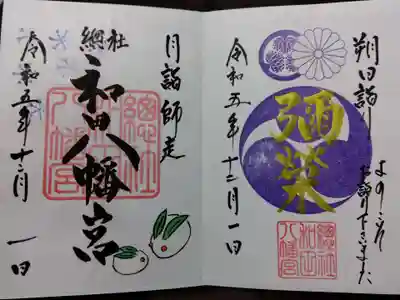 朔日詣り
ようこそ
お詣り下さいました
彌榮
總社
和田
八幡宮
令和五年十二月一日
月詣師走
總社
和田八幡宮
總社
和田
八幡宮
令和五年十二月一日